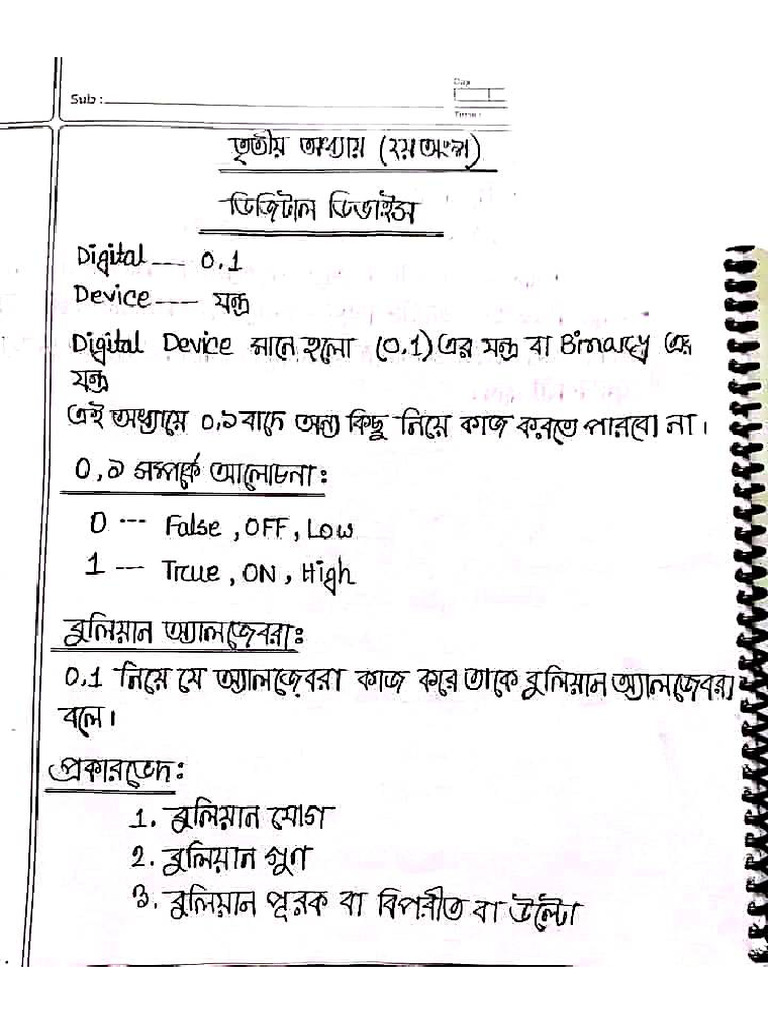 Sub :
Day
Time :
তৃতীয় অধ্যায় (২য় অংশ)
ডিজিটাল ডিভাইস
Digital --- 0,1
Device ---- যন্ত্র
Digital Device মানে হলো (0,1) এর যন্ত্র বা Binary এর
যন্ত্র
এই অধ্যায়ে ০,১ বাদে অন্য কিছু নিয়ে কাজ করতে পারবো না।
০,১ সম্পর্কে আলোচনা:
0 --- False, OFF, Low
1 --- True, ON, High
বুলিয়ান অ্যালজেবরা:
0,1 নিয়ে যে অ্যালজেবরা কাজ করে তাকে বুলিয়ান অ্যালজেবরা
বলে।
প্রকারভেদ:
1. বুলিয়ান যোগ
2. বুলিয়ান গুণ
3. বুলিয়ান পূরক বা বিপরীত বা উল্টো